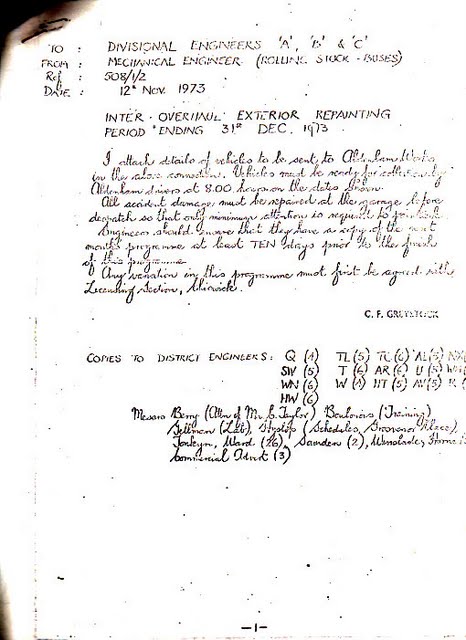 TO : DIVISIONAL ENGINEERS 'A', 'B' & 'C'
FROM : MECHANICAL ENGINEER (ROLLING STOCK - BUSES)
Ref : 508/1/2
DATE : 12th Nov. 1973
INTER - OVERHAUL EXTERIOR REPAINTING
PERIOD ENDING 31st DEC. 1973
I attach details of vehicles to be sent to Aldenham Works
in the above connection. Vehicles must be ready for collection by
Aldenham drivers at 8.00 hours on the dates shown.
All accident damage must be repaired at the garage before
despatch so that only minimum attention is required to
Engineers should ensure that they have a copy of the next
month's programme at least TEN days prior to the finish
of this programme.
Any variation in this programme must first be agreed with
Licensing Section, Chiswick.
C. F.
COPIES TO DISTRICT ENGINEERS: Q (4) TL (5) TC (6) AL (5)
SW (5) T (6) AR (6) U (5)
WN (6) W (4) HT (5) AV (5)
HW (6)
Messrs Berry (Attn of Mr. C. Taylor) (Training)
(Lab), (Schedules, Grosvenor Place),
Ward (26), (2),
Commercial Advert (3)
-1-